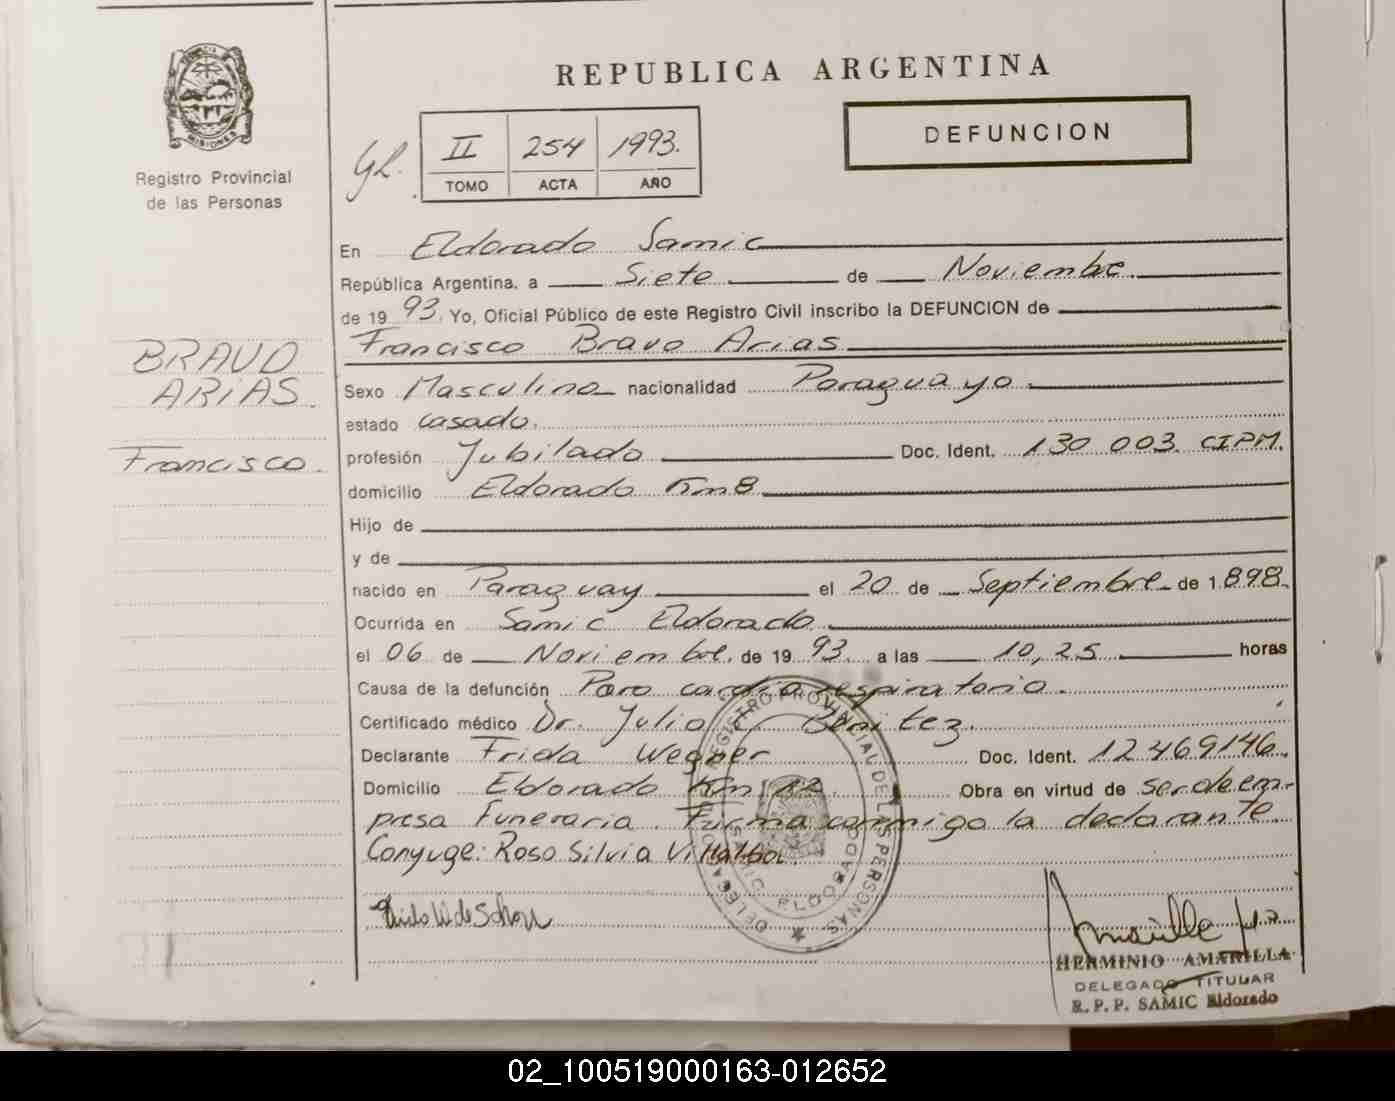 PROVINCIA DE
MISIONES
Registro Provincial
de las Personas
REPUBLICA ARGENTINA
DEFUNCION
II 254 1993.
TOMO ACTA AÑO
En Eldorado Samic
República Argentina, a Siete de Noviembre
de 19 93. Yo, Oficial Público de este Registro Civil inscribo la DEFUNCION de
Francisco Bravo Arias
BRAVO
ARIAS.
Francisco.
Sexo Masculino nacionalidad Paraguayo
estado casado.
profesión Jubilado Doc. Ident. 130 003 CIPM.
domicilio Eldorado Km 8
Hijo de
y de
nacido en Paraguay el 20 de Septiembre de 1.898.
Ocurrida en Samic Eldorado
el 06 de Noviembre. de 19 93. a las 10,25 horas
Causa de la defunción Paro cardio respiratorio.
Certificado médico Dr. Julio C. Benitez.
Declarante Frida Wegner Doc. Ident. 12469146.
Domicilio Eldorado Km Obra en virtud de ser de em-
presa Funeraria. Firma conmigo la declarante.
Conyuge: Rosa Silvia Villalba.
REGISTRO PROVINCIAL DE LAS PERSONAS
SAMIC ELDORADO
HERMINIO AMARILLA
DELEGADO TITULAR
R. P. P. SAMIC Eldorado
02_100519000163-012652